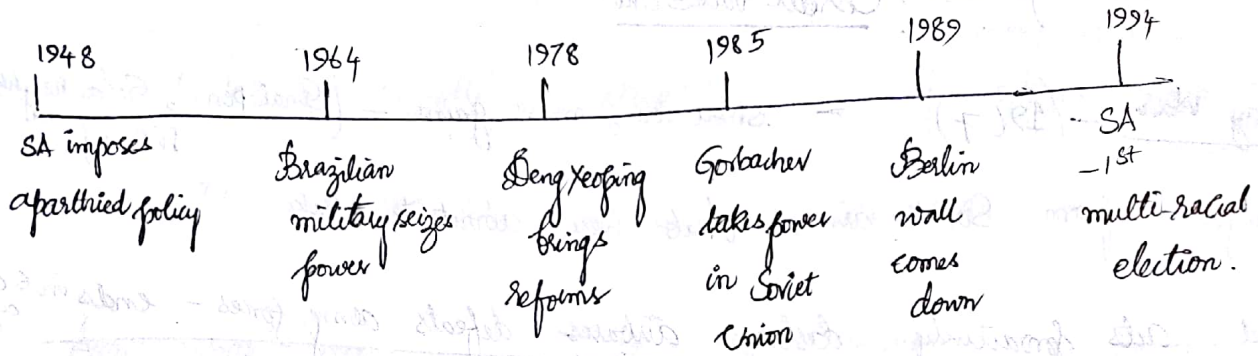 1948
SA imposes
aparthied policy
1964
Brazilian
military seizes
power
1978
Deng Xeoping
brings
reforms
1985
Gorbachev
takes power
in Soviet
Union
1989
Berlin
wall
comes
down
1994
- SA
- 1st
multi-racial
election.